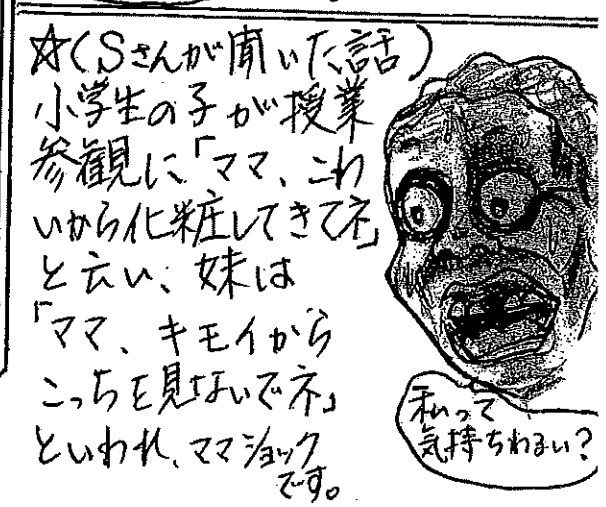 ☆(Sさんが聞いた話)
小学生の子が授業
参観に、「ママ、こわ
いから化粧してきてネ」
と云い、妹は
「ママ、キモイから
こっちを見ないでネ」
といわれ、ママショック
です。
私って
気持ちわるい?